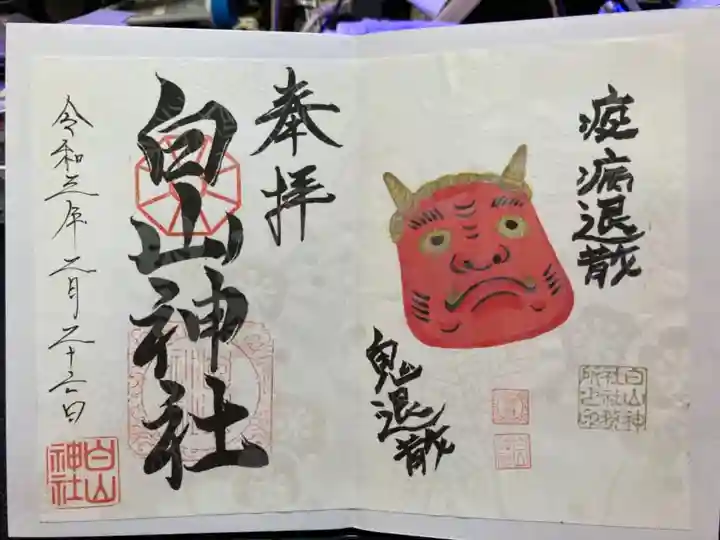 疫病退散
鬼退散
白山神
社社務
所之印
奉拝
白山神社
令和三年二月二十六日
白山
神社